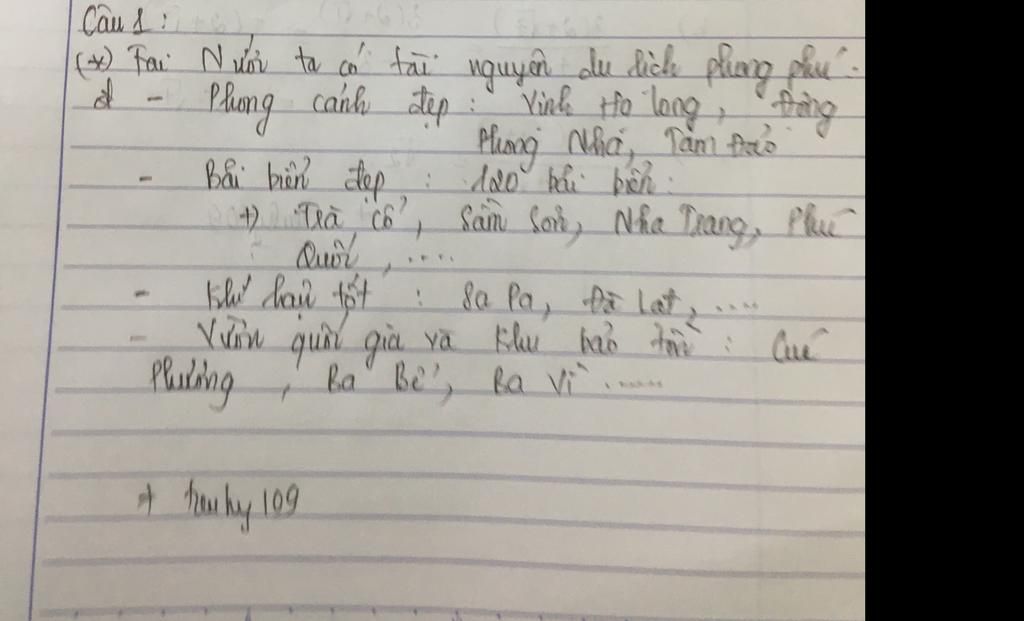 Câu 1:
(*) Nước ta có tài nguyên du lịch phong phú.
- Phong cảnh đẹp: Vịnh Hạ Long, Động
Phong Nha, Tam Đảo
- Bãi biển đẹp: 120 bãi biển:
+) Trà Cổ, Sầm Sơn, Nha Trang, Phú
Quốc, ....
- Khí hậu tốt: Sa Pa, Đà Lạt, ....
- Vườn quốc gia và khu bảo tồn: Cúc
Phương, Ba Bể, Ba Vì ......
109